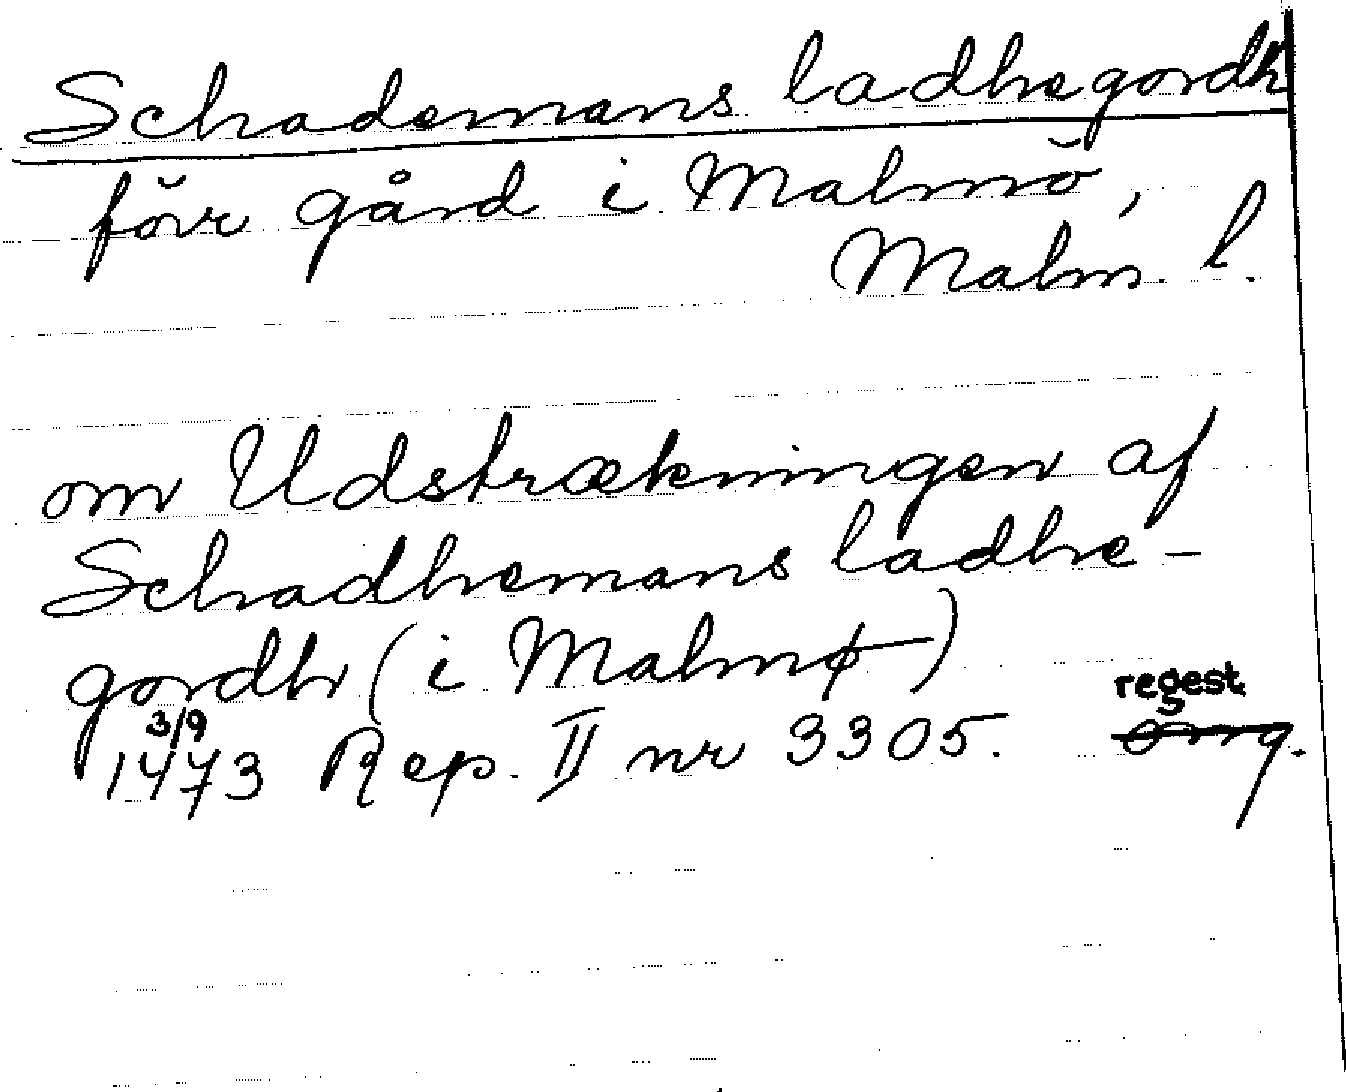 Schademans ladhegordh
förr gård i Malmö,
Malm. l.
om Udstrækningen af
Schadhemans ladhe-
gordh (i Malmø)
regest
3/9
1473 Rep. II nr 3305. orig.